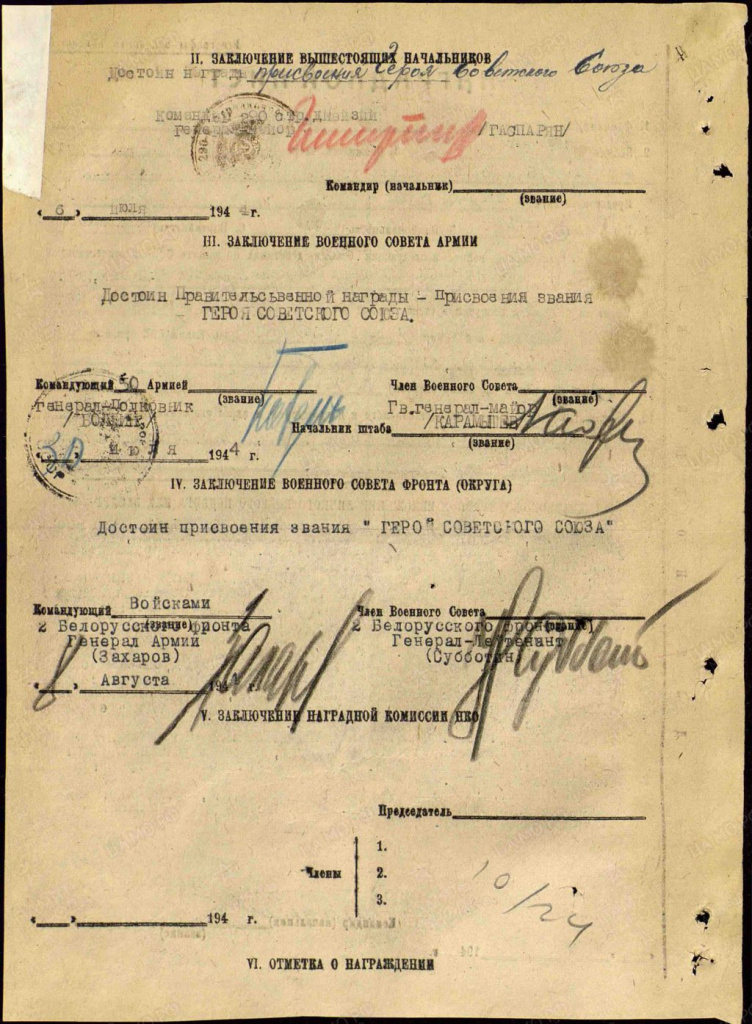 II. ЗАКЛЮЧЕНИЕ ВЫШЕСТОЯЩИХ НАЧАЛЬНИКОВ
Достоин наград присвоения Героя Советского Союза
Командир 290 стр.дивизии
Генерал-майор /ГАСПАРЯН/
Командир (начальник)
(звание)
"6" июля 1944 г.
III. ЗАКЛЮЧЕНИЕ ВОЕННОГО СОВЕТА АРМИИ
Достоин Правительсьвенной награды - Присвоения звания
- ГЕРОЯ СОВЕТСКОГО СОЮЗА.
Командующий 50 Армией
Член Военного Совета
(звание) (звание)
генерал-Полковник Гв.генерал-майор
/БОЛДИН/ Начальник штаба /КАРАМЫШЕВ
(звание)
июля 1944 г.
IV. ЗАКЛЮЧЕНИЕ ВОЕННОГО СОВЕТА ФРОНТА (ОКРУГА)
Достоин присвоения звания " ГЕРОЙ СОВЕТСКОГО СОЮЗА"
Командующий Войсками Член Военного Совета
(звание) (звание)
2 Белорусского фронта 2 Белорусского фронта
Генерал Армии Генерал-Лейтенант
(Захаров) (Субботин)
"8" Августа 194
V. ЗАКЛЮЧЕНИЕ НАГРАДНОЙ КОМИССИИ НКО
Председатель
Члены
1.
2.
3.
10/24
" " 194 г.
VI. ОТМЕТКА О НАГРАЖДЕНИИ